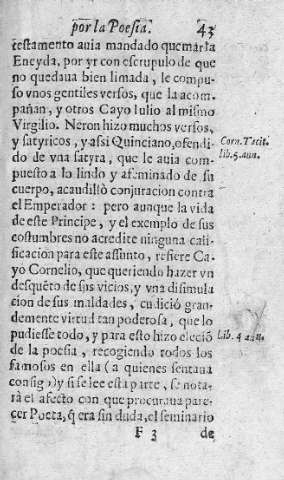 por la Poesia. 43
testamento auia mandado quemar la
Eneyda, por yr con escrupulo de que
no quedaua bien limada, le compu-
so vnos gentiles versos, que la acom-
pañan, y otros Cayo Iulio al mismo
Virgilio. Neron hizo muchos versos,
y satyricos, y assi Quinciano, ofendi-
Corn. Tacit.
do de vna satyra, que le auia com-
lib. 5. ann.
puesto a lo lindo y afeminado de su
cuerpo, acaudillò conjuracion contra
el Emperador: pero aunque la vida
de este Principe, y el exemplo de sus
costumbres no acredite ninguna cali-
ficacion para este assunto, refiere Ca-
yo Cornelio, que queriendo hazer vn
desquẽto de sus vicios, y vna disimula
cion de sus maldades, cudiciò gran-
demente virtud tan poderosa, que lo
pudiesse todo, y para esto hizo elecciõ
Lib. 4 ann.
de la poesia, recogiendo todos los
famosos en ella (a quienes sentaua
consigo) y si se lee esta parte, se nota-
rà el afecto con que procuraua pare-
cer Poeta, q̃ era sin duda, el seminario
F 3 de